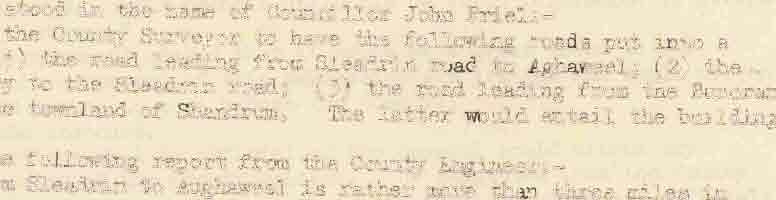 stood in the name of Councillor John Friel:-
the County Surveyor to have the following roads put into a
1) the road leading from Sleadrin road to Aghaweel; (2) the
y to the Sleadrin road; (3) the road leading from the
e townland of Shandrum. The latter would entail the building
e following report from the County Engineer:-
m Sleadrin to Aughaweel is rather more than three miles in